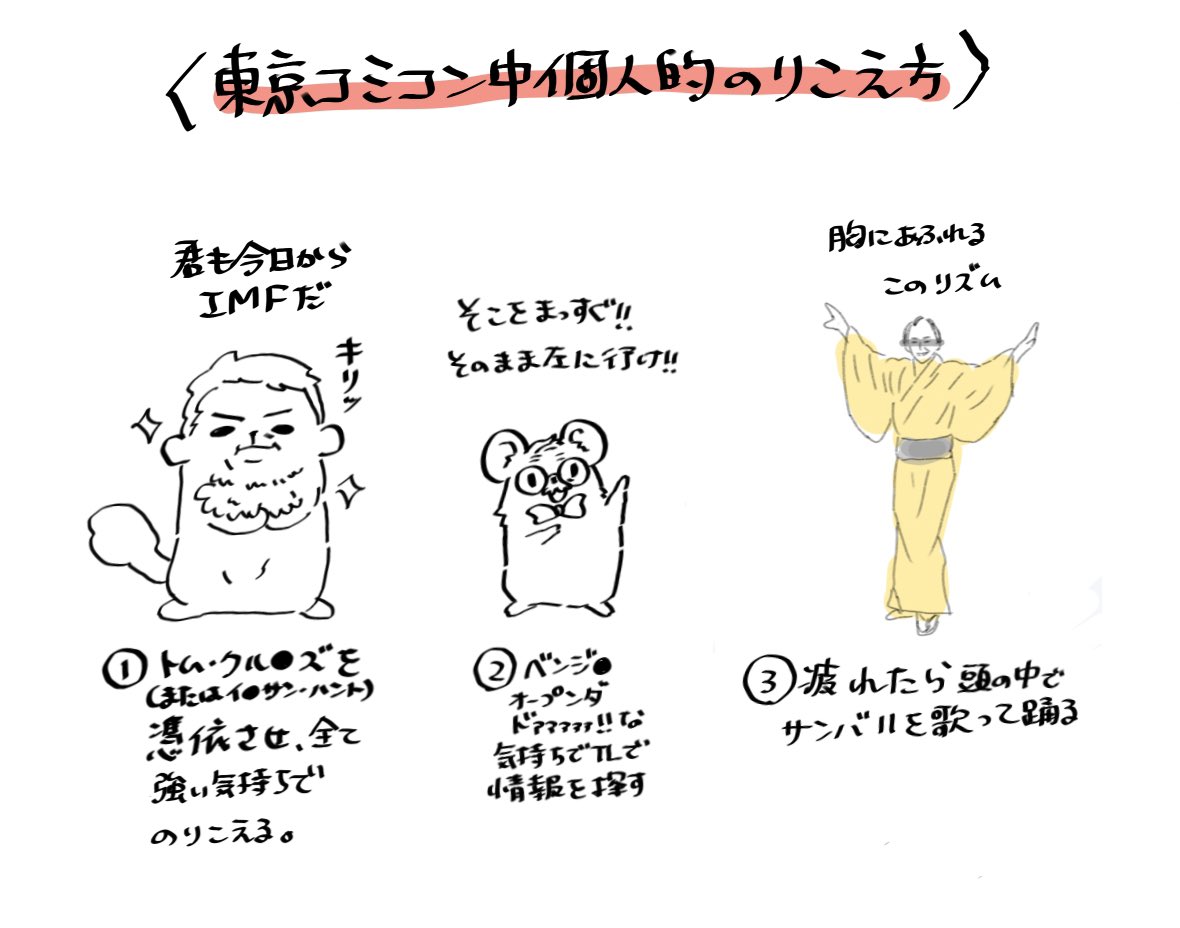 〈東京コミコン中個人的のりこえ方〉
君も今日から
IMFだ
キリッ
そこをまっすぐ!!
そのまま左に行け!!
胸にあふれる
このリズム
①トム・クル●ズを
(またはイ●サン・ハント)
憑依させ、全て
強い気持ちで
のりこえる。
②ベンジ●
オープンダ
ドアァァァァ!!な
気持ちでTLで
情報を探す
③疲れたら頭の中で
サンバⅡを歌って踊る